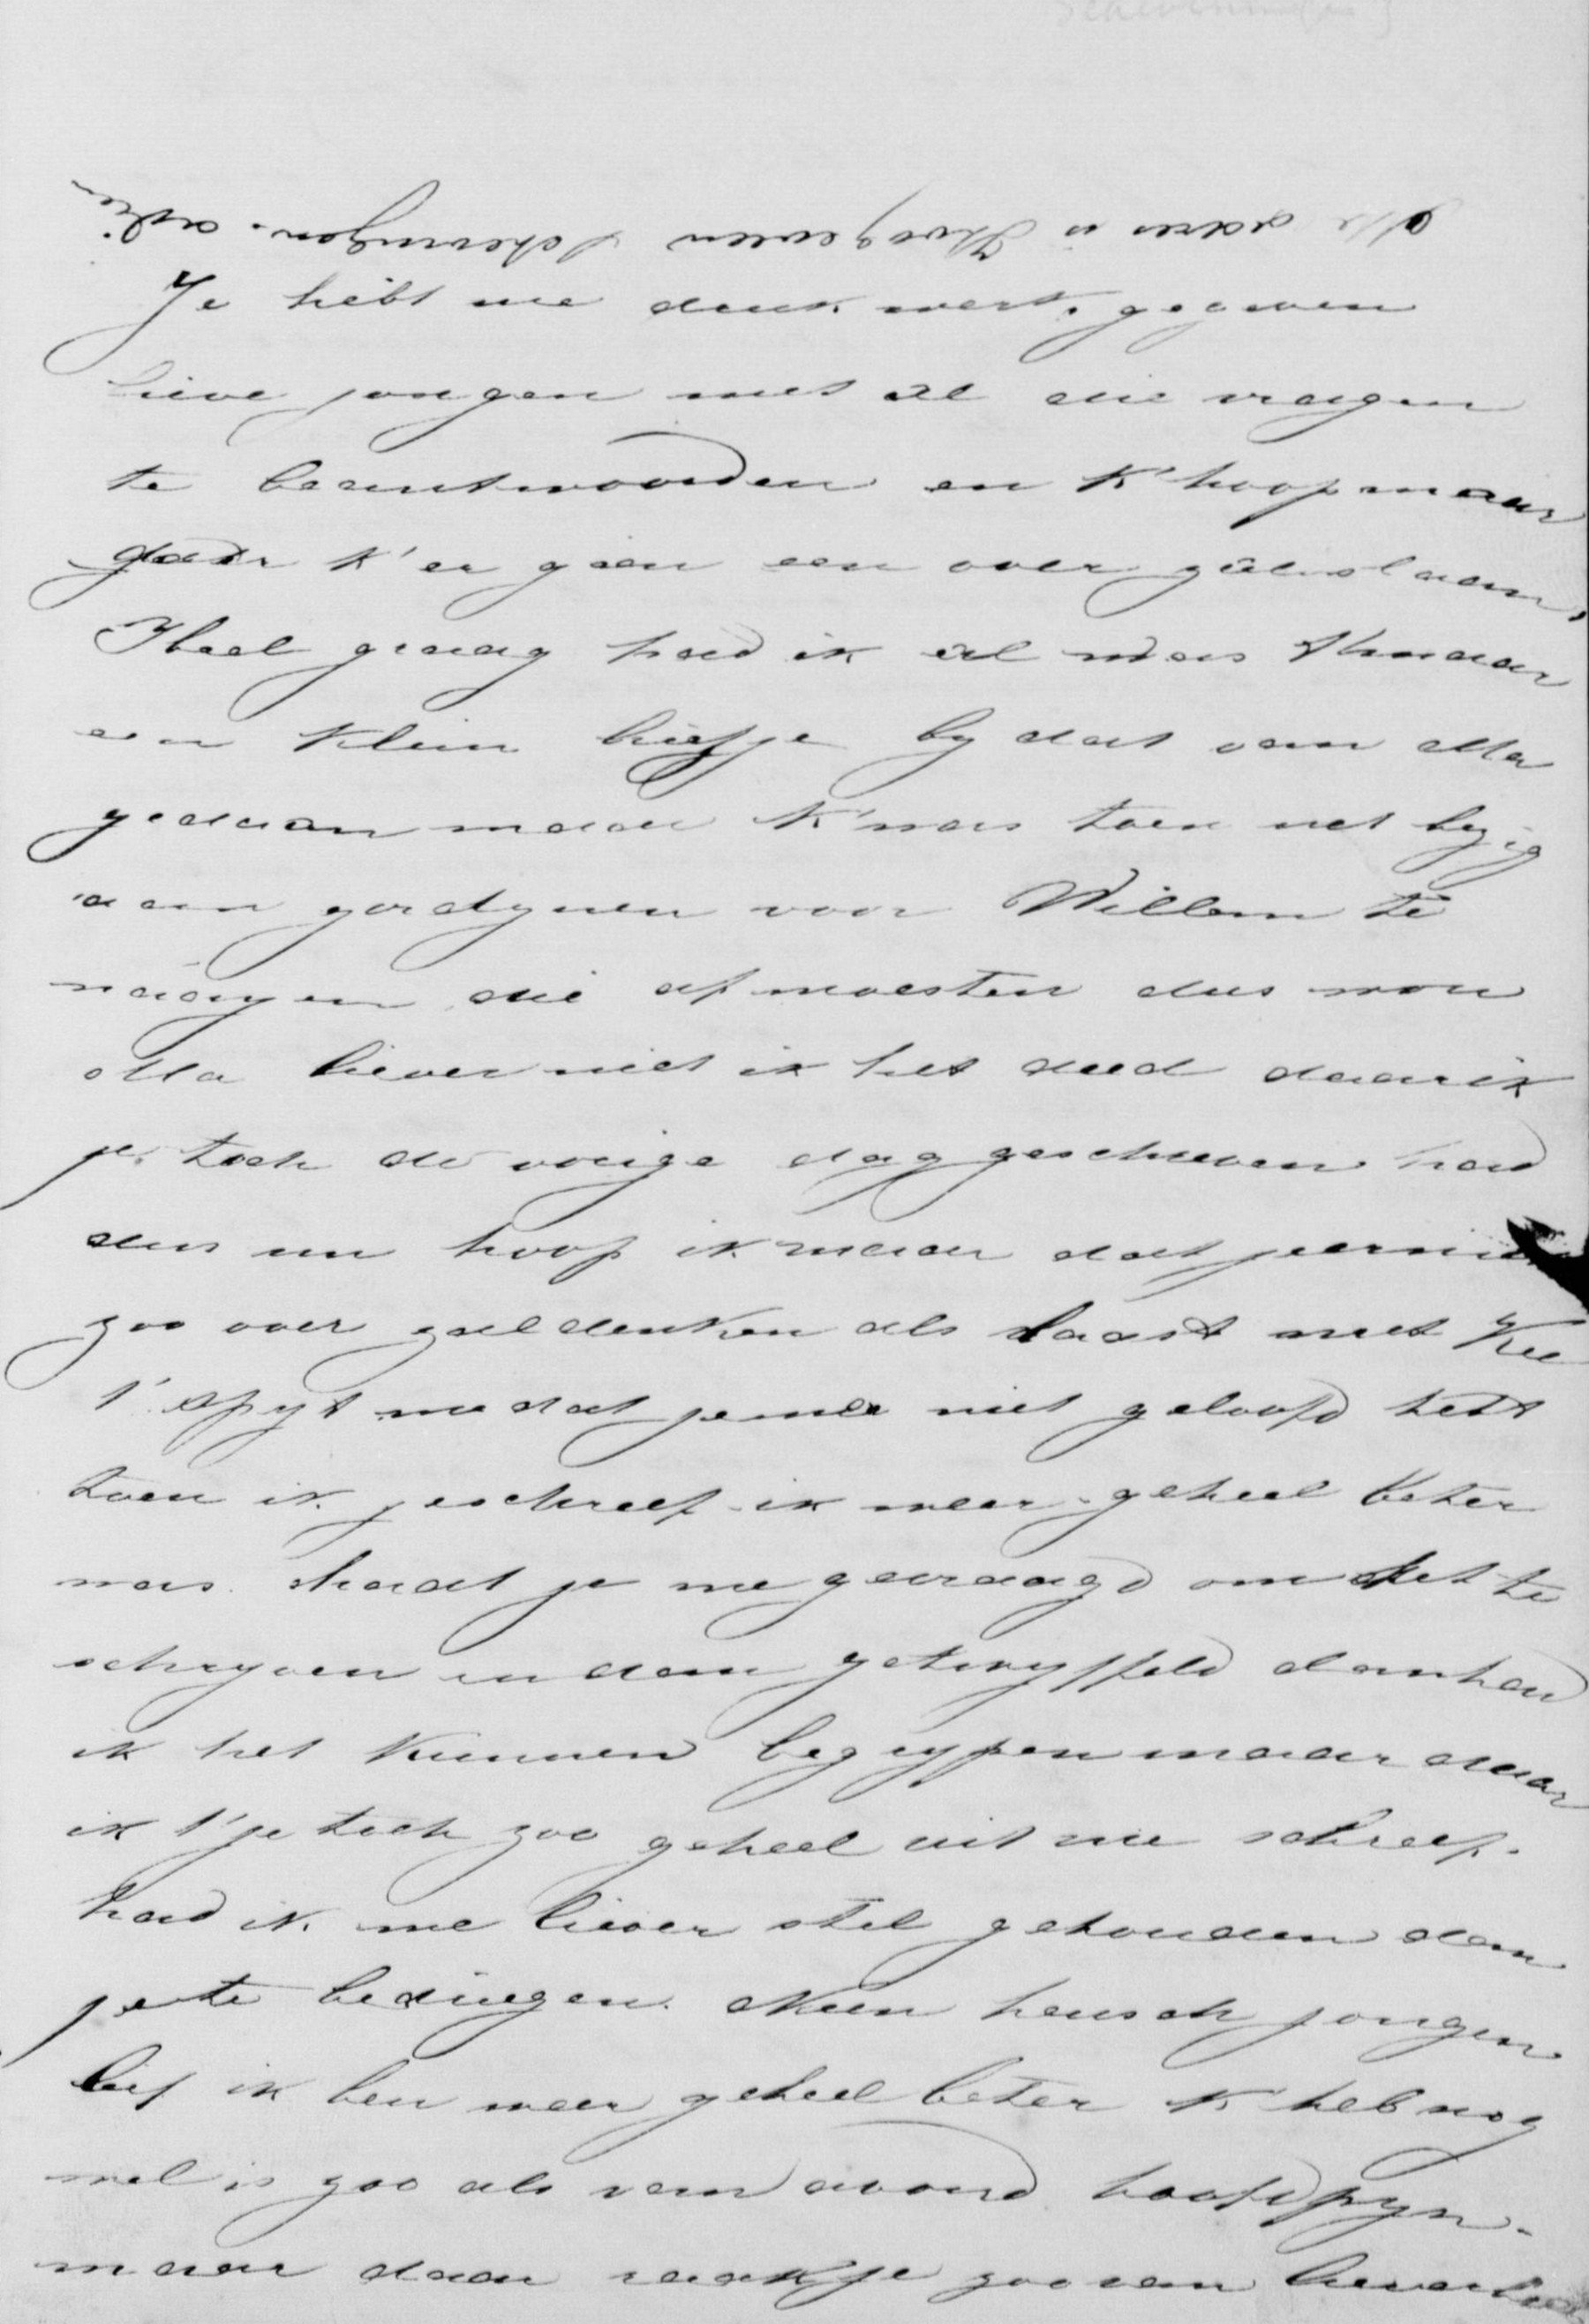 Je hebt me denk werk gegeven
lieve jongen met al die vragen
te beantwoorden en k' hoop maar
dat k' er geen een over zal slaan,
Heel graag had ik al was t maar
een klein briefje by dat van Ma
gedaan maar k' was toen net bezig
aan gordynen voor Willem te
naaiyen die af moesten dus wou
Ma liever niet ik het deed daar ik
je toch de vorige dag geschreven had
dus nu hoop ik maar dat je er niet
zoo over zal denken als laast met
t' spyt me dat je me niet geloofd hebt
toen ik je schreef ik weer geheel beter
was. hadt je me gevraagd om het te
schryven en dan getwyffeld dan had
ik het kunnen begrypen maar daar
ik t' je toch zoo geheel uit me schreef.
had ik me liever stil gehouden dan
je te bedriegen. Neen heusch jongen
lief ik ben weer geheel beter k heb nog
wel is zoo als van avond hoofdpyn.
maar daar raak je zoo aan